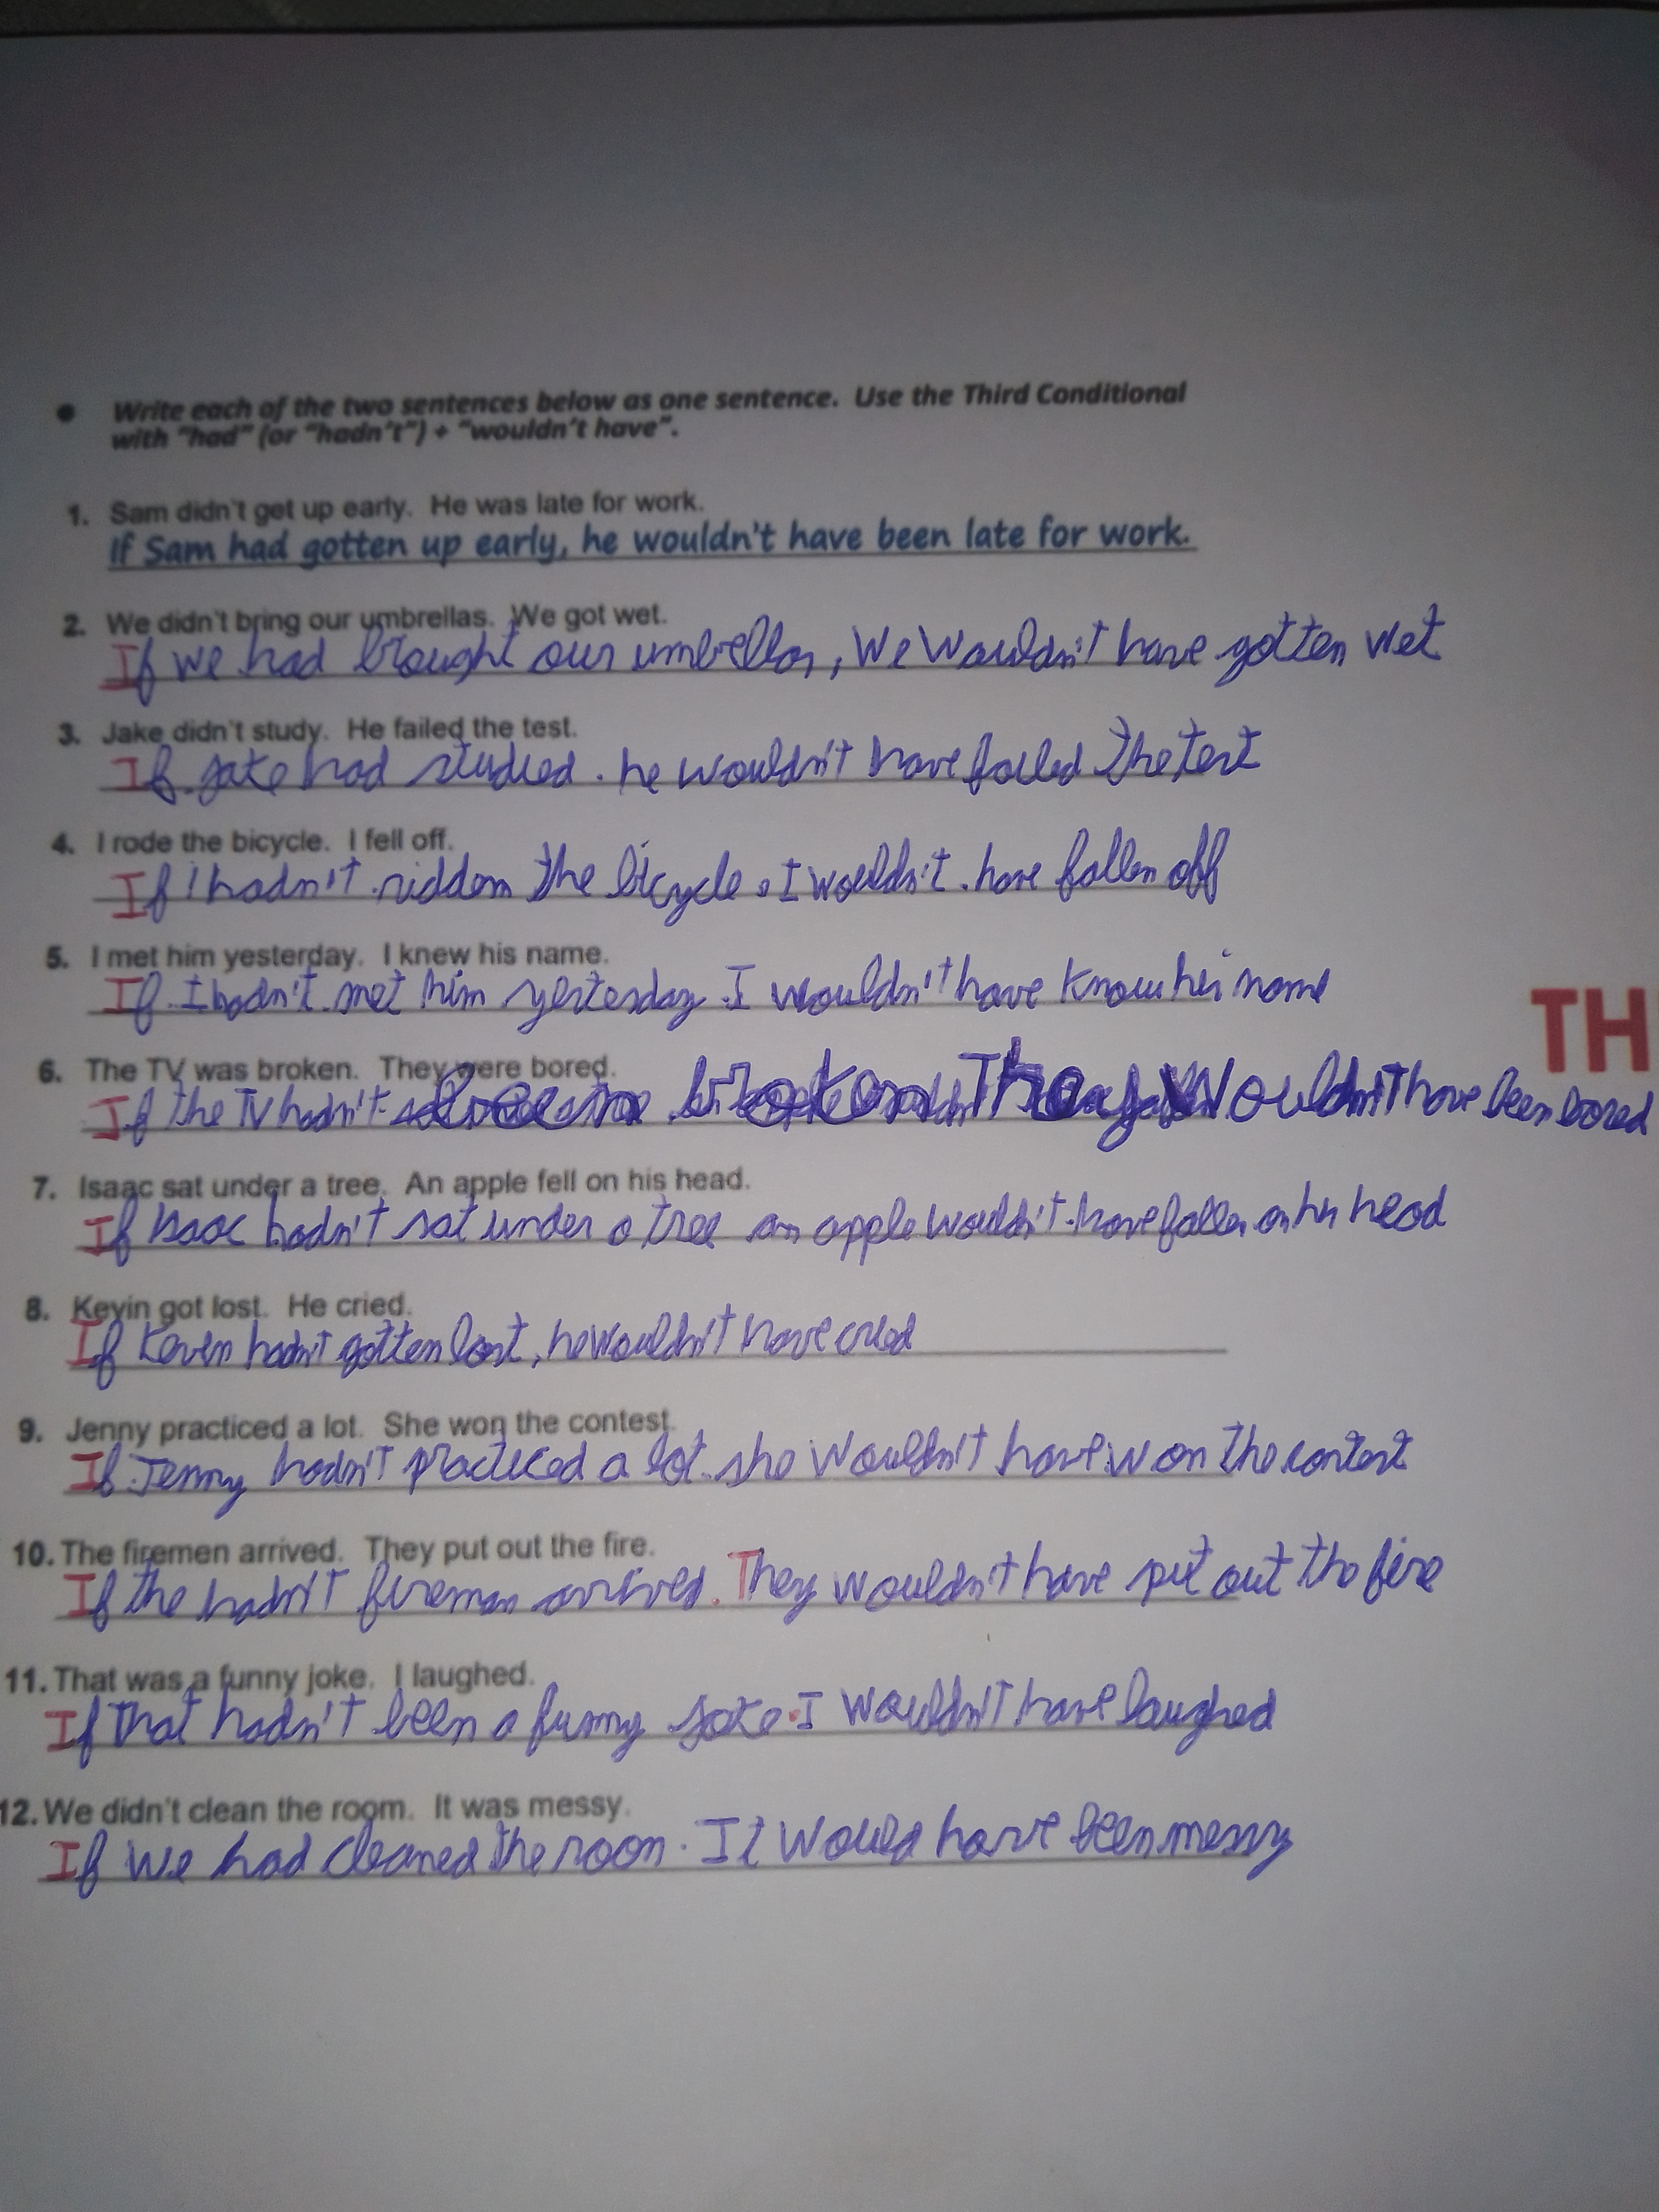 ● Write each of the two sentences below as one sentence. Use the Third Conditional
with "had" (or "hadn't") + "wouldn't have".
1. Sam didn't get up early. He was late for work.
If Sam had gotten up early, he wouldn't have been late for work.
2. We didn't bring our umbrellas. We got wet.
If we had brought our umbrellas, We Wouldn't have gotten wet
3. Jake didn't study. He failed the test.
If Jake had studied. he wouldn't have failed the test
4. I rode the bicycle. I fell off.
If I hadn't ridden the bicycle. I wouldn't have fallen off
5. I met him yesterday. I knew his name.
If I hadn't met him yesterday. I wouldn't have known his name
TH
6. The TV was broken. They were bored.
If the TV hadn't been broken They Wouldn't have been bored
7. Isaac sat under a tree. An apple fell on his head.
If Isaac hadn't sat under a tree an apple wouldn't have fallen on his head
8. Kevin got lost. He cried.
If Keven hadn't gotten lost, he wouldn't have cried
9. Jenny practiced a lot. She won the contest.
If Jenny hadn't practiced a lot. she Wouldn't have won the contest
10. The firemen arrived. They put out the fire.
If the hadn't fireman arrived. They wouldn't have put out the fire
11. That was a funny joke. I laughed.
If that hadn't been a funny joke. I Wouldn't have laughed
12. We didn't clean the room. It was messy.
If we had cleaned the room. It Would have been messy